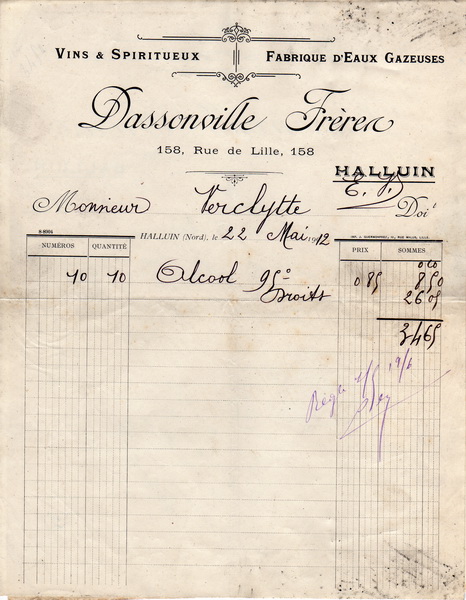 VINS & SPIRITUEUX FABRIQUE D'EAUX GAZEUSES
Dassonville Frères
158, Rue de Lille, 158
HALLUIN
Monsieur Verclytte Doit
HALLUIN (Nord), le 22 Mai 1912
NUMÉROS QUANTITÉ PRIX SOMMES
10 10 Alcool 95° 0 85 8 50
Droits 26 05
34 65
Réglé